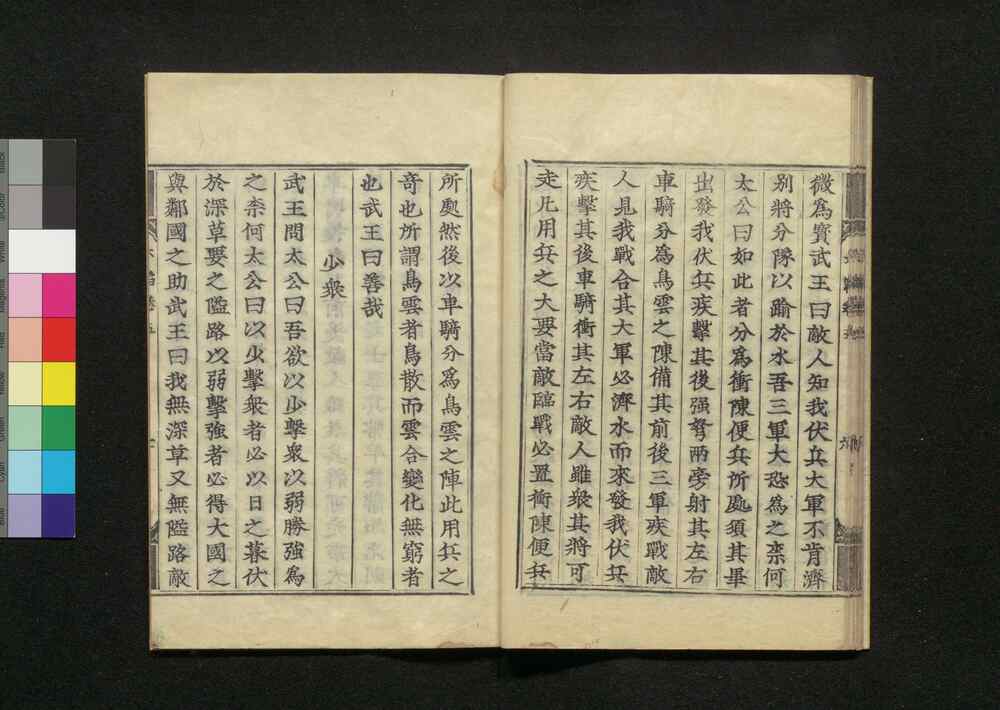 微爲寶武王曰敵人知我伏兵大軍不肯濟
別將分隊以踰於水吾三軍大恐爲之柰何
太公曰如此者分爲衝陳便兵所處須其畢
出發我伏兵疾擊其後强弩兩旁射其左右
車騎分爲鳥雲之陳備其前後三軍疾戰敵
人見我戰合其大軍必濟水而來發我伏兵
疾擊其後車騎衝其左右敵人雖衆其將可
走凡用兵之大要當敵臨戰必置衝陳便兵
所處然後以車騎分爲鳥雲之陣此用兵之
奇也所謂鳥雲者鳥散而雲合變化無窮者
也武王曰善哉
少衆
武王問太公曰吾欲以少擊衆以弱勝強爲
之柰何太公曰以少擊衆者必以日之暮伏
於深草要之隘路以弱擊強者必得大國之
與鄰國之助武王曰我無深草又無隘路敵